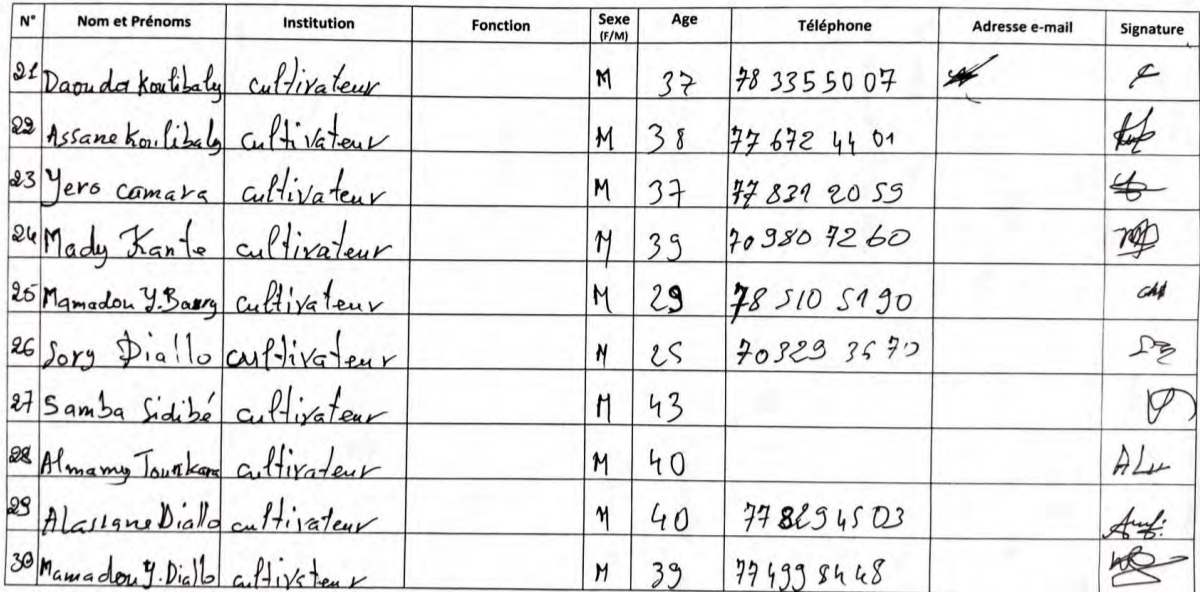 N° Nom et Prénoms Institution Fonction Sexe (F/M) Age Téléphone Adresse e-mail Signature
21 Daouda Koulibaly cultivateur M 37 78 335 50 07
22 Assane Koulibaly cultivateur M 38 77 672 44 01
23 Yero camara cultivateur M 37 77 831 20 59
24 Mady Kante cultivateur M 39 70 980 72 60
25 Mamadou Y. Barry cultivateur M 29 78 510 51 90
26 Sory Diallo cultivateur M 25 70 329 36 70
27 Samba Sidibé cultivateur M 43
28 Almamy Tounkara cultivateur M 40
29 Alassane Diallo cultivateur M 40 77 829 45 03
30 Mamadou Y. Diallo cultivateur M 39 77 499 84 48